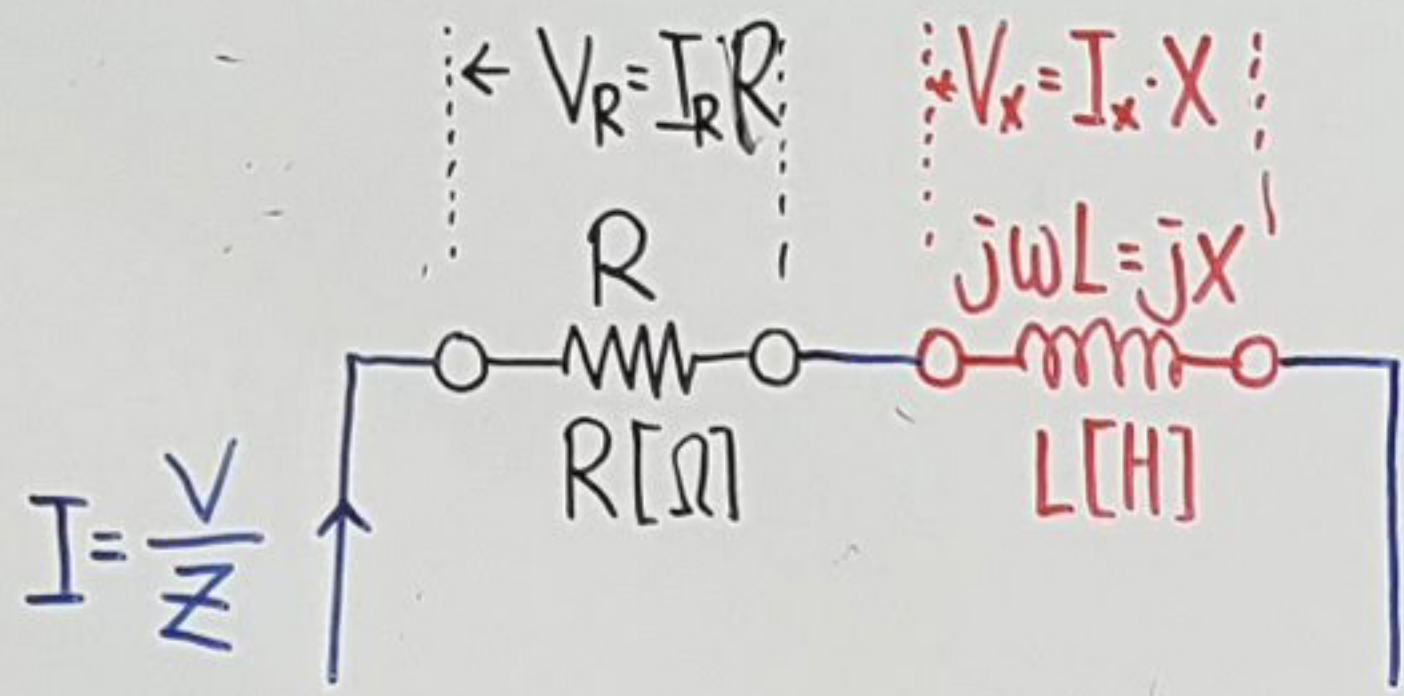 ← V_R = I_R R
V_x = I_x · X
R
jωL = jX
R[Ω]
L[H]
I = V/Z